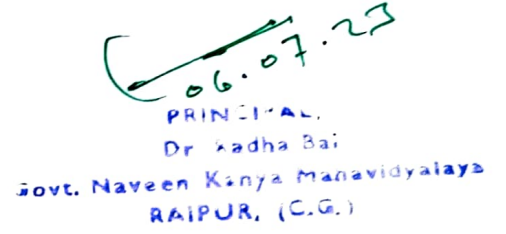 06.07.23
PRINCIPAL,
Dr Radha Bai
Govt. Naveen Kanya Mahavidyalaya
RAIPUR, (C.G.)